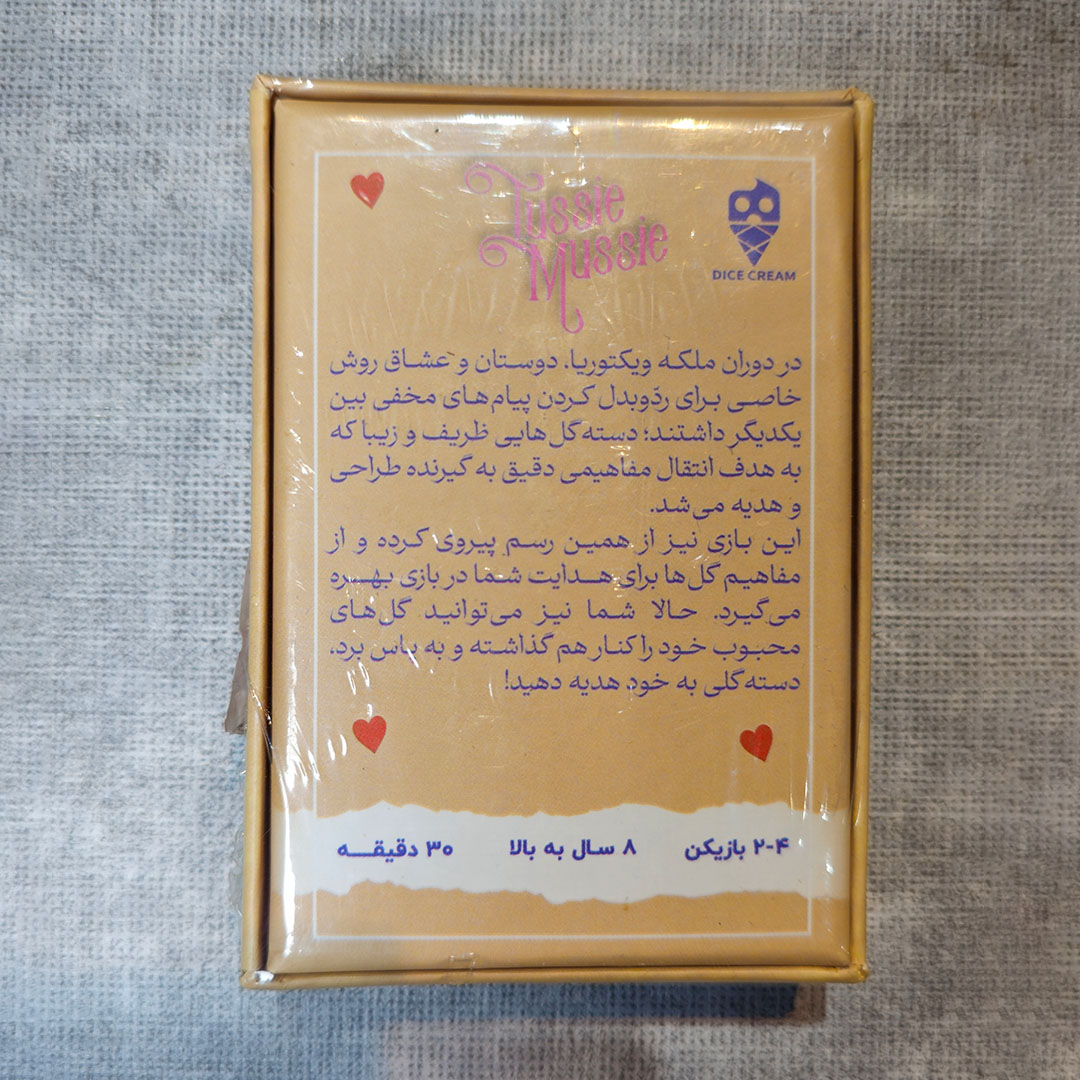 Tussie
Mussie
DICE CREAM
در دوران ملکه ویکتوریا، دوستان و عشاق روش
خاصی برای ردّوبدل کردن پیام‌های مخفی بین
یکدیگر داشتند؛ دسته‌گل‌هایی ظریف و زیبا که
به هدف انتقال مفاهیمی دقیق به گیرنده طراحی
و هدیه می‌شد.
این بازی نیز از همین رسم پیروی کرده و از
مفاهیم گل‌ها برای هدایت شما در بازی بهره
می‌گیرد. حالا شما نیز می‌توانید گل‌های
محبوب خود را کنار هم گذاشته و به پاس برد،
دسته‌گلی به خود هدیه دهید!
۲-۴ بازیکن
۸ سال به بالا
۳۰ دقیقه